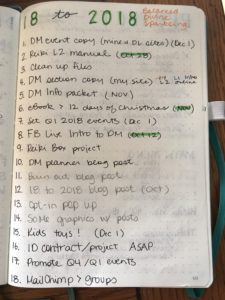 18 to 2018
Balanced
Divine
Spa-being
1. DM event copy (mine + DL acres) (Dec 1)
2. Reiki L2 manual (Oct 28)
3. Clean up files
4. DM section copy (my site) L2 L1 Intro
online
5. DM Info packet (NOV)
6. eBook > 12 days of Christmas (Nov)
7. Set Q1 2018 events (Dec 1)
8. FB Live Intro to DM (Oct 12)
9. Reiki Box project
10. DM planner blog post
11. Burn out blog post
12. 18 to 2018 blog post (Oct)
13. Opt-in pop up
14. SoMe graphics w/ posts
15. Kids toys! (Dec 1)
16. ID contract/project ASAP
17. Promote Q4/Q1 events
18. MailChimp > groups